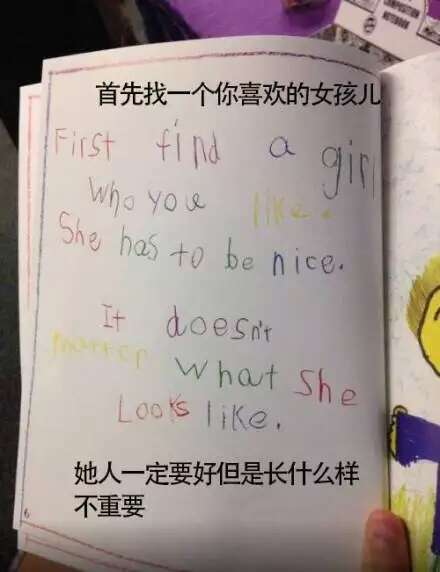 COMPOSITION
NOTEBOOK
首先找一个你喜欢的女孩儿
First find a girl
who you like.
She has to be nice.
It doesn't
matter what she
Looks like.
她人一定要好但是长什么样
不重要
6